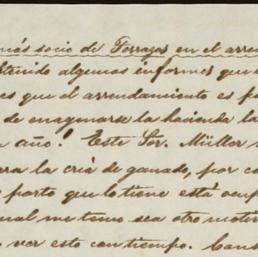 más socio de Torrazas en el arren
btenido algunos informes que
es que el arrendamiento es po
de enagenarse la hacienda la
n año! Este Sor. Müller
ara la cria de ganado, por co
parto que lo tiene está ocup
ual me temo sea otro motiv
ver esto con tiempo. Cans